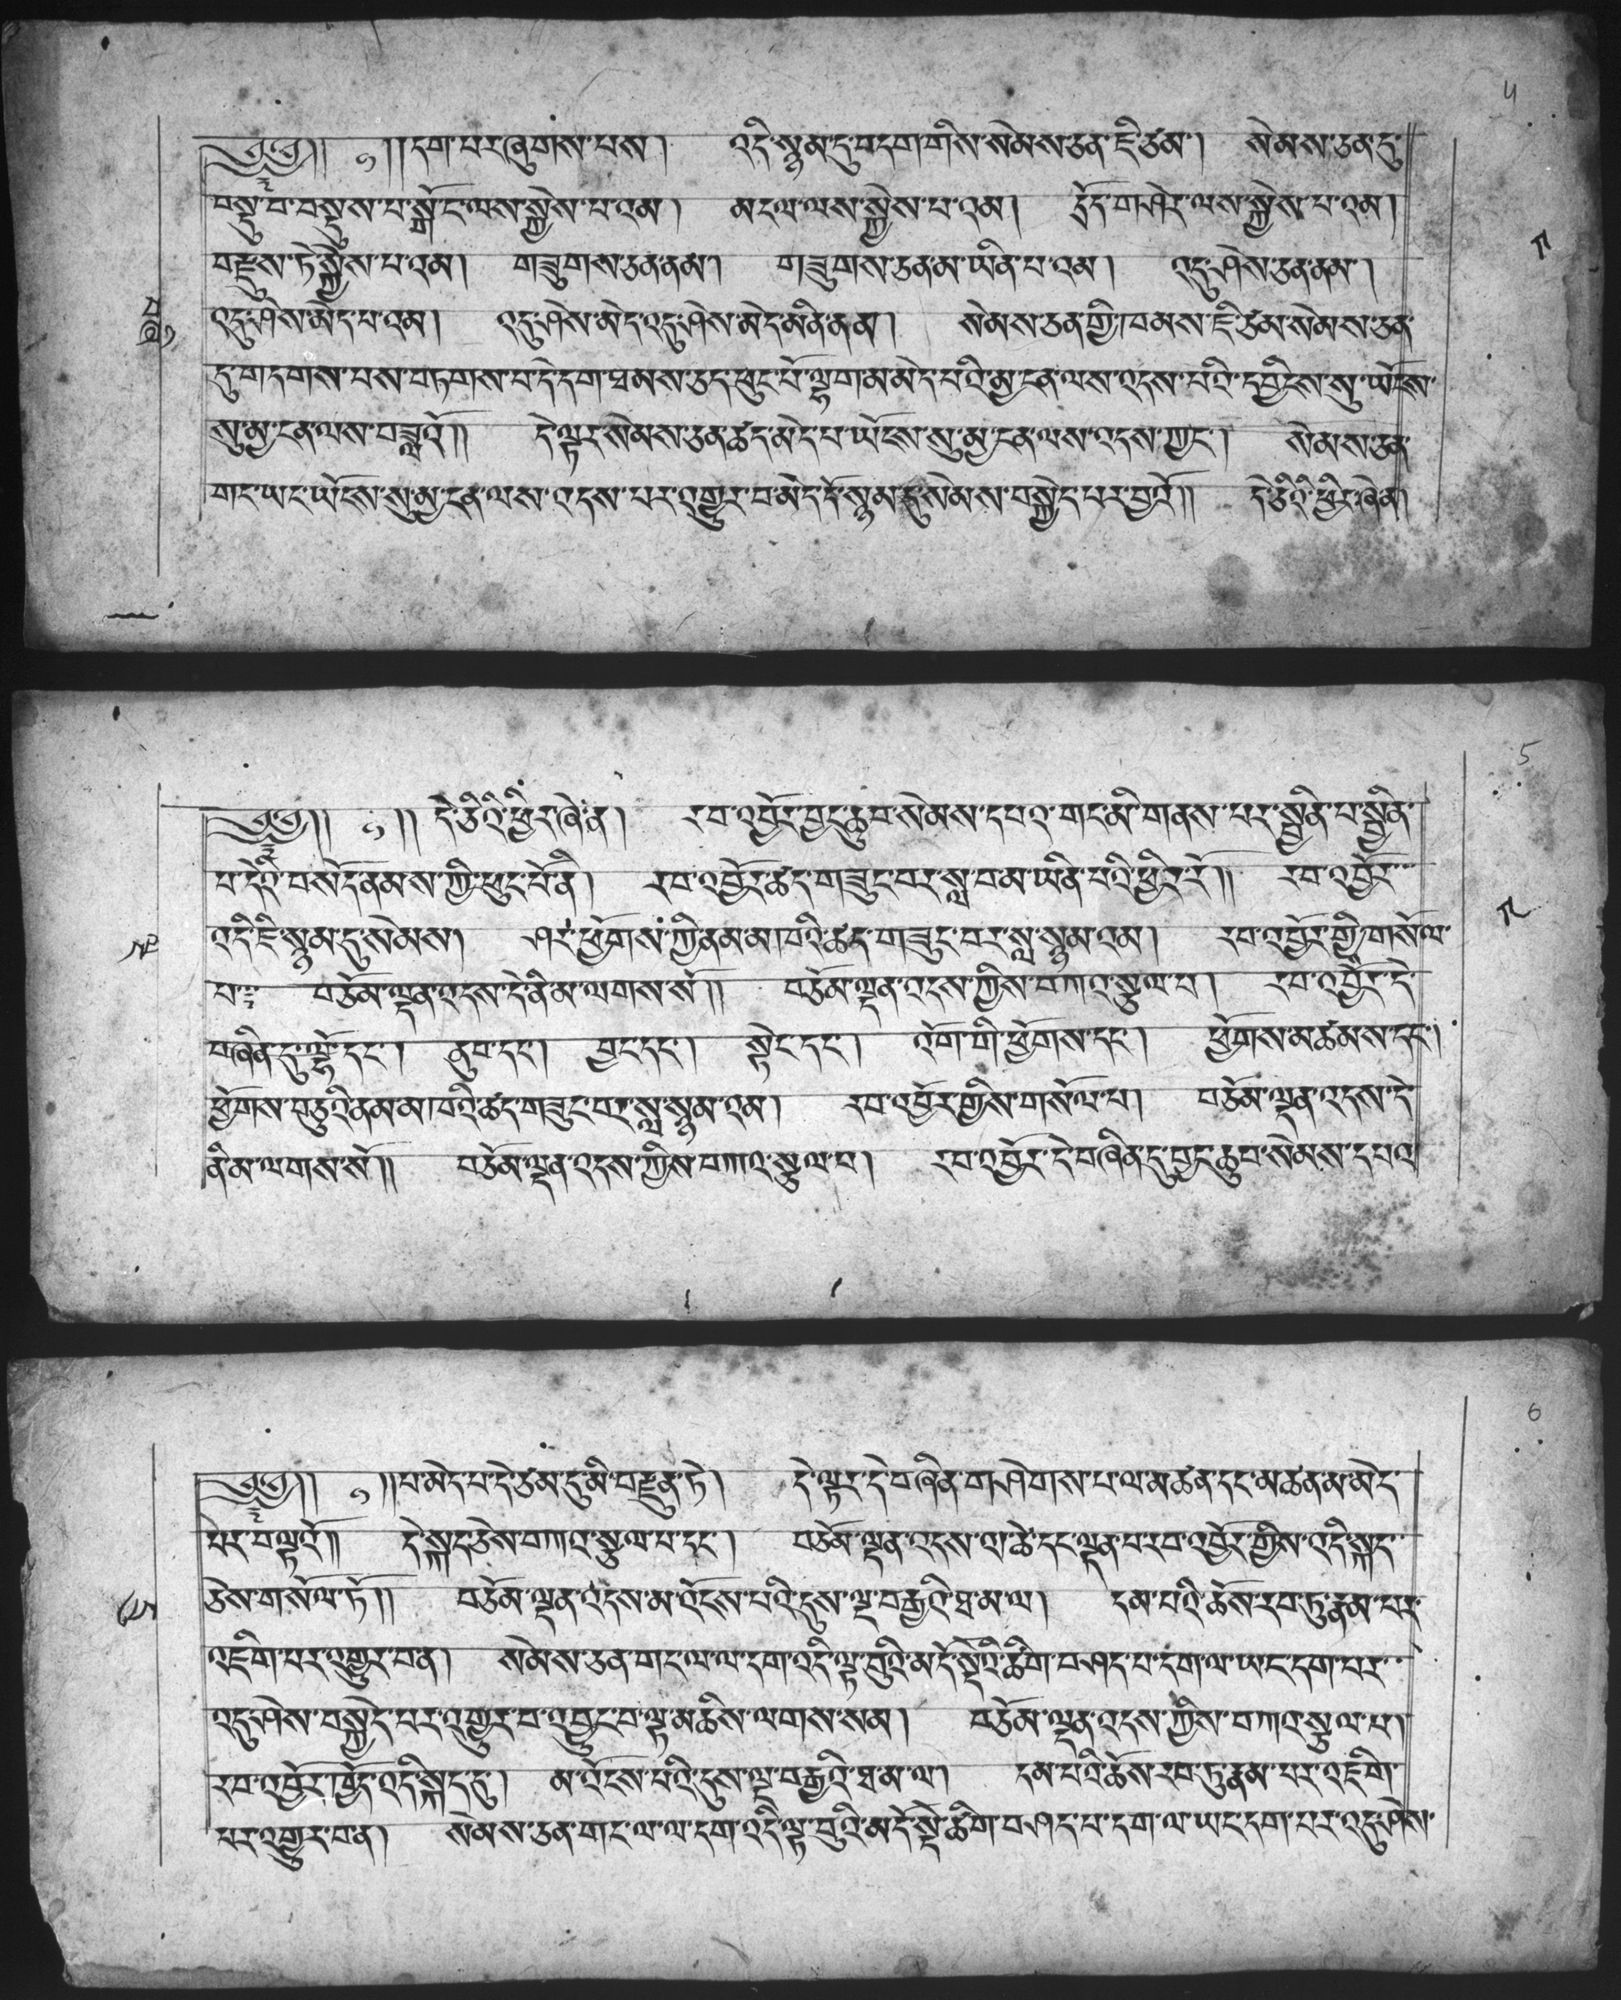 ༄༅།། ༡ །།དག་པར་ཞུགས་པས། འདི་སྙམ་དུ་བདག་གིས་སེམས་ཅན་ཇི་ཙམ། སེམས་ཅན་དུ་
བསྡུ་བ་བསྡུས་པ་སྒོ་ང་ལས་སྐྱེས་པ་འམ། མངལ་ལས་སྐྱེས་པ་འམ། དྲོད་གཤེར་ལས་སྐྱེས་པ་འམ།
བརྫུས་ཏེ་སྐྱེས་པ་འམ། གཟུགས་ཅན་ནམ། གཟུགས་ཅན་མ་ཡིན་པ་འམ། འདུ་ཤེས་ཅན་ནམ།
འདུ་ཤེས་མེད་པ་འམ། འདུ་ཤེས་མེད་འདུ་ཤེས་མེད་མིན་ནམ། སེམས་ཅན་གྱི་ཁམས་ཇི་ཙམ་སེམས་ཅན་
དུ་གདགས་པས་བཏགས་པ་དེ་དག་ཐམས་ཅད་ཕུང་པོ་ལྷག་མ་མེད་པའི་མྱ་ངན་ལས་འདས་པའི་དབྱིངས་སུ་ཡོངས་
སུ་མྱ་ངན་ལས་བཟླའོ།། དེ་ལྟར་སེམས་ཅན་ཚད་མེད་པ་ཡོངས་སུ་མྱ་ངན་ལས་འདས་ཀྱང་། སེམས་ཅན་
གང་ཡང་ཡོངས་སུ་མྱ་ངན་ལས་འདས་པར་འགྱུར་བ་མེད་དོ་སྙམ་དུ་སེམས་བསྐྱེད་པར་བྱའོ།། དེ་ཅིའི་ཕྱིར་ཞེ་ན།
༄༅།། ༡ །། དེ་ཅིའི་ཕྱིར་ཞེ་ན། རབ་འབྱོར་བྱང་ཆུབ་སེམས་དཔའ་གང་མི་གནས་པར་སྦྱིན་པ་སྦྱིན་
པ་དེའི་བསོད་ནམས་ཀྱི་ཕུང་པོ་ནི། རབ་འབྱོར་ཚད་གཟུང་བར་སླ་བ་མ་ཡིན་པའི་ཕྱིར་རོ།། རབ་འབྱོར་
འདི་ཇི་སྙམ་དུ་སེམས། ཤར་ཕྱོགས་ཀྱི་ནམ་མཁའི་ཚད་གཟུང་བར་སླ་སྙམ་འམ། རབ་འབྱོར་གྱི་གསོལ་
པ༔ བཅོམ་ལྡན་འདས་དེ་ནི་མ་ལགས་སོ།། བཅོམ་ལྡན་འདས་ཀྱིས་བཀའ་སྩལ་པ། རབ་འབྱོར་དེ་
བཞིན་དུ་ལྷོ་དང་། ནུབ་དང་། བྱང་དང་། སྟེང་དང་། འོག་གི་ཕྱོགས་དང་། ཕྱོགས་མཚམས་དང་།
ཕྱོགས་བཅུའི་ནམ་མཁའི་ཚད་གཟུང་བར་སླ་སྙམ་འམ། རབ་འབྱོར་གྱིས་གསོལ་པ། བཅོམ་ལྡན་འདས་དེ་
ནི་མ་ལགས་སོ།། བཅོམ་ལྡན་འདས་ཀྱིས་བཀའ་སྩལ་པ། རབ་འབྱོར་དེ་བཞིན་དུ་བྱང་ཆུབ་སེམས་དཔའ་
༄༅།། ༡ །།པ་མེད་པ་དེ་ཙམ་དུ་མི་བརྫུན་ཏེ། དེ་ལྟར་དེ་བཞིན་གཤེགས་པ་ལ་མཚན་དང་མཚན་མ་མེད་
པར་བལྟའོ།། དེ་སྐད་ཅེས་བཀའ་སྩལ་པ་དང་། བཅོམ་ལྡན་འདས་ལ་ཚེ་དང་ལྡན་པ་རབ་འབྱོར་གྱིས་འདི་སྐད་
ཅེས་གསོལ་ཏོ།། བཅོམ་ལྡན་འདས་མ་འོངས་པའི་དུས་ལྔ་བརྒྱའི་ཐ་མ་ལ། དམ་པའི་ཆོས་རབ་ཏུ་རྣམ་པར་
འཇིག་པར་འགྱུར་བ་ན། སེམས་ཅན་གང་ལ་ལ་དག་འདི་ལྟ་བུའི་མདོ་སྡེའི་ཚིག་བཤད་པ་དག་ལ་ཡང་དག་པར་
འདུ་ཤེས་བསྐྱེད་པར་འགྱུར་བ་འབྱུང་བ་ལྟ་མཆིས་ལགས་སམ། བཅོམ་ལྡན་འདས་ཀྱིས་བཀའ་སྩལ་པ།
རབ་འབྱོར་ཁྱོད་འདི་སྐད་དུ། མ་འོངས་པའི་དུས་ལྔ་བརྒྱའི་ཐ་མ་ལ། དམ་པའི་ཆོས་རབ་ཏུ་རྣམ་པར་འཇིག་
པར་འགྱུར་བ་ན། སེམས་ཅན་གང་ལ་ལ་དག་འདི་ལྟ་བུའི་མདོ་སྡེ་ཚིག་བཤད་པ་དག་ལ་ཡང་དག་པར་འདུ་ཤེས་